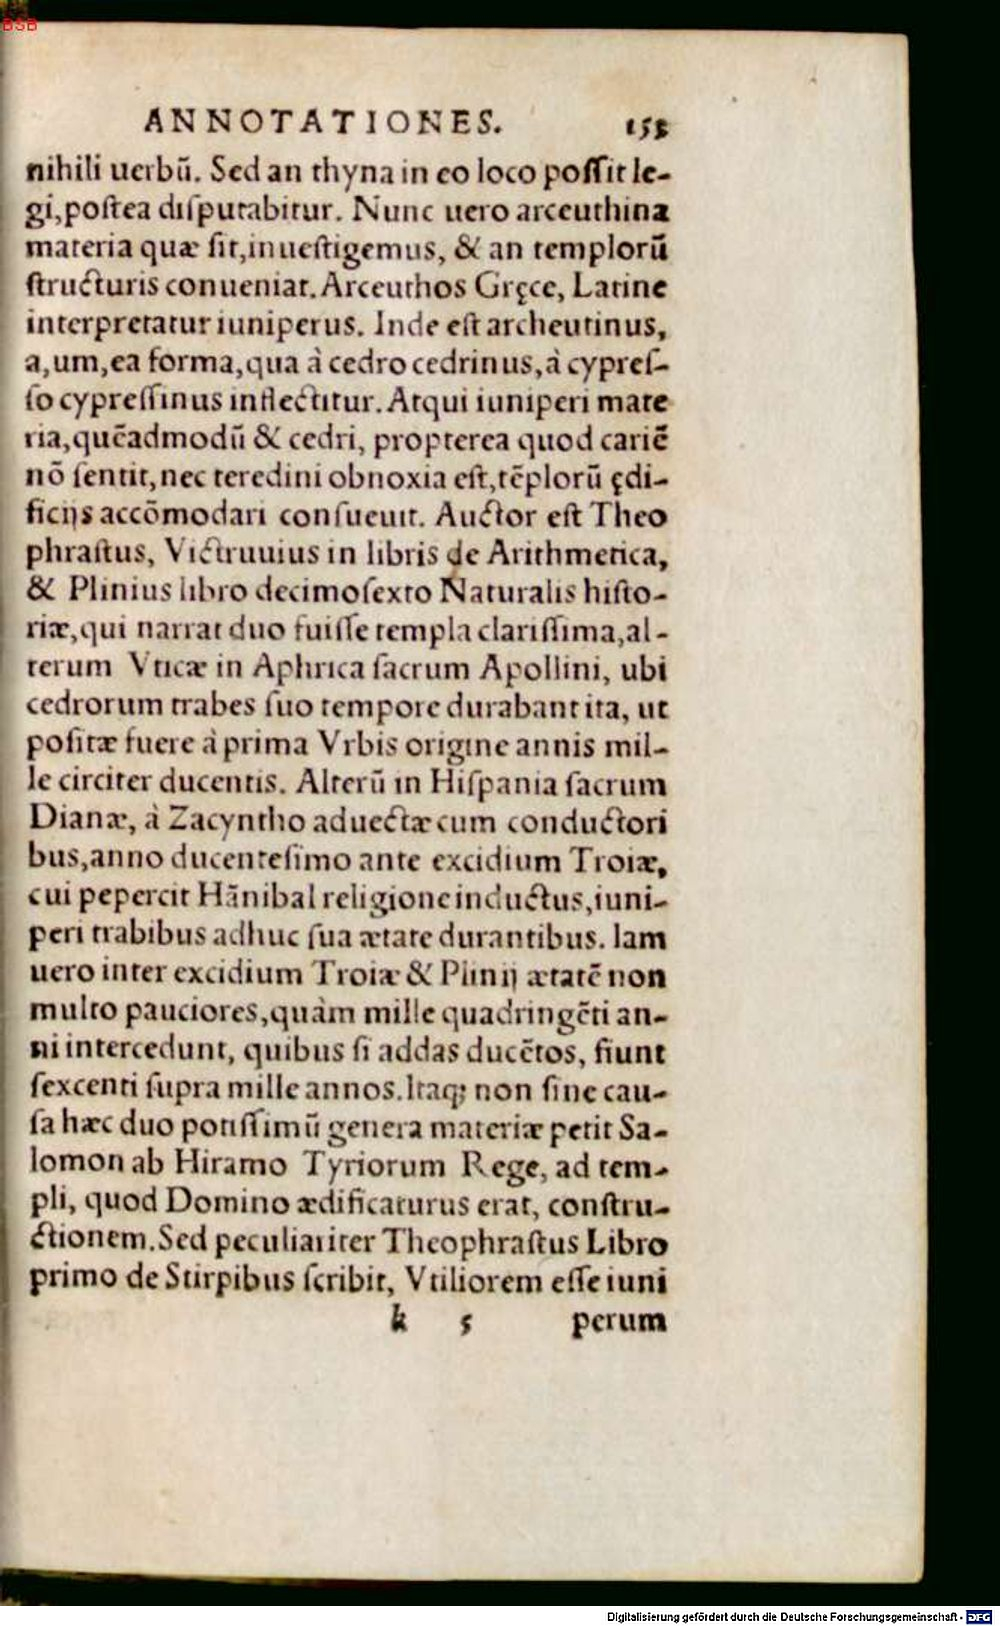 BSB
ANNOTATIONES. 158
nihili uerbū. Sed an thyna in eo loco poſſit le-
gi, poſtea diſputabitur. Nunc uero arceuthina
materia quæ ſit, inueſtigemus, & an templorū
ſtructuris conueniat. Arceuthos Gręce, Latine
interpretatur iuniperus. Inde eſt archeutinus,
a, um, ea forma, qua à cedro cedrinus, à cypreſ-
ſo cypreſſinus inflectitur. Atqui iuniperi mate
ria, quēadmodū & cedri, propterea quod cariē
nō ſentit, nec teredini obnoxia eſt, tēplorū ędi-
ficijs accōmodari conſueuit. Auctor eſt Theo
phraſtus, Victruuius in libris de Arithmetica,
& Plinius libro decimoſexto Naturalis hiſto-
riæ, qui narrat duo fuiſſe templa clariſſima, al-
terum Vticæ in Aphrica ſacrum Apollini, ubi
cedrorum trabes ſuo tempore durabant ita, ut
poſitæ fuere à prima Vrbis origine annis mil-
le circiter ducentis. Alterū in Hiſpania ſacrum
Dianæ, à Zacyntho aduectæ cum conductori
bus, anno ducenteſimo ante excidium Troiæ,
cui pepercit Hānibal religione inductus, iuni-
peri trabibus adhuc ſua ætate durantibus. Iam
uero inter excidium Troiæ & Plinij ætatē non
multo pauciores, quàm mille quadringēti an-
ni intercedunt, quibus ſi addas ducētos, fiunt
ſexcenti ſupra mille annos. Itaq; non ſine cau-
ſa hæc duo potiſſimū genera materiæ petit Sa-
lomon ab Hiramo Tyriorum Rege, ad tem-
pli, quod Domino ædificaturus erat, conſtru-
ctionem. Sed peculiariter Theophraſtus Libro
primo de Stirpibus ſcribit, Vtiliorem eſſe iuni
k 5 perum
Digitalisierung gefördert durch die Deutsche Forschungsgemeinschaft - DFG